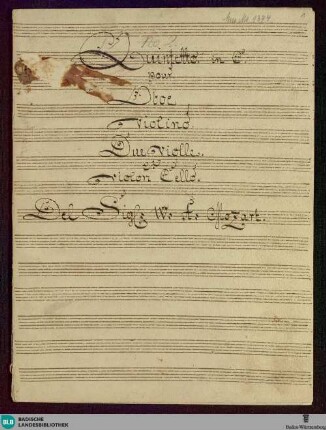 Mus. Ms. 1394
Quintetto in C.
pour
Oboe
Violino
Due Violle.
Violon Cello.
Del Sigre W. A. Mozart.
BLB BADISCHE
LANDESBIBLIOTHEK
Baden-Württemberg